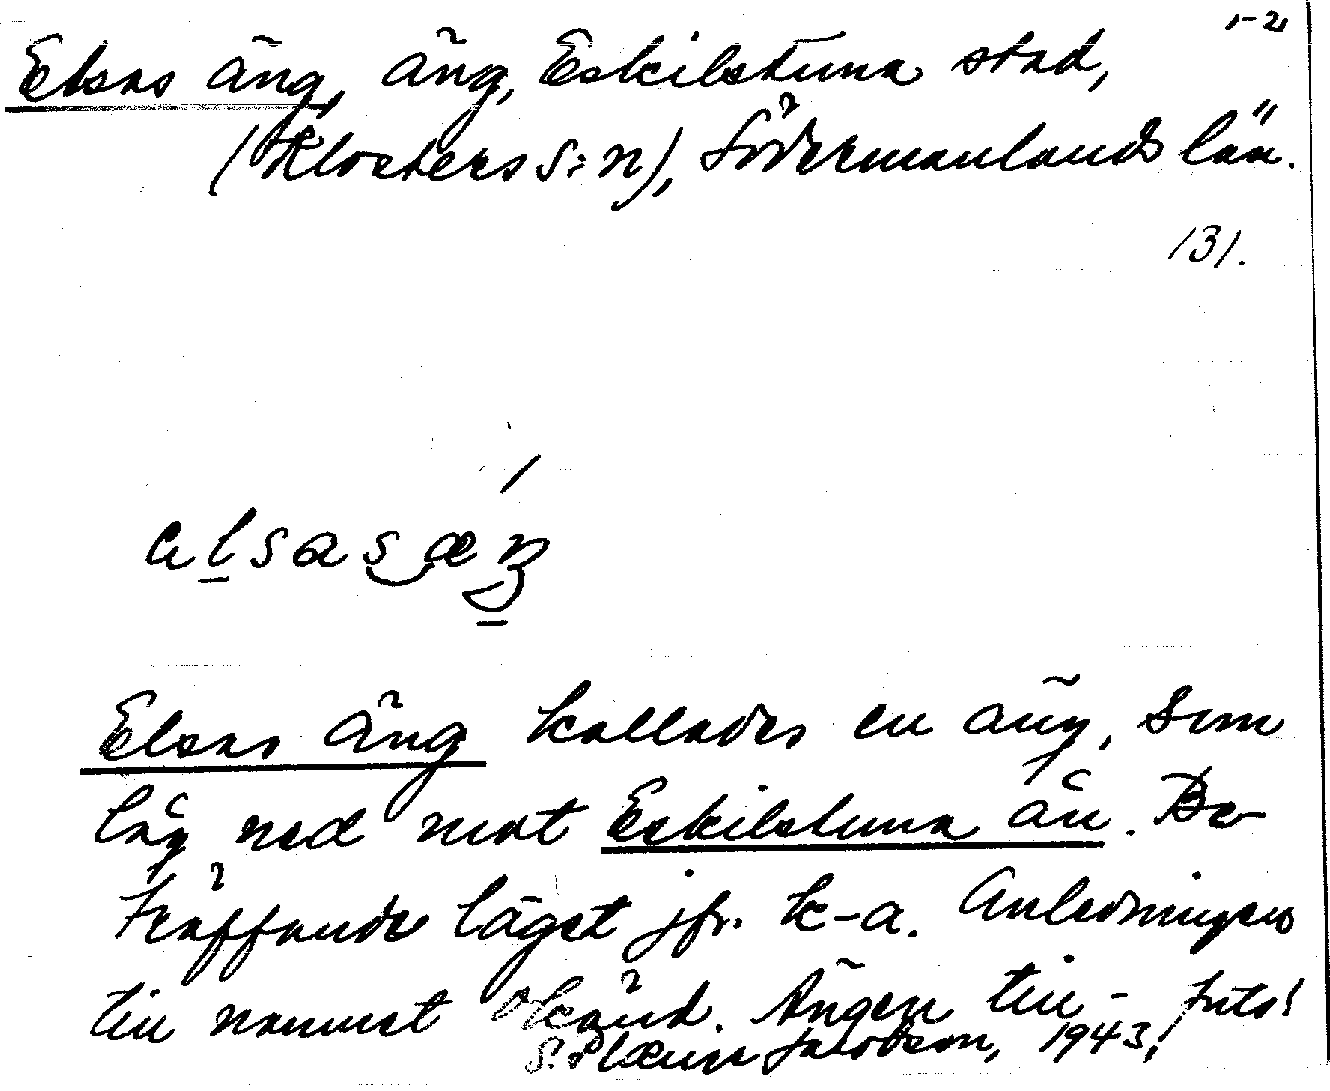 1-2
Elsas äng, äng, Eskilstuna stad,
(Klosters s:n), Södermanlands län.
131.
elsasæŋ
Elsas äng kallades en äng, som
låg ned mot Eskilstuna ån. Be-
träffande läget jfr. k-a. Anledningen
till namnet okänd. Ängen till-
S. Jacobson, 1943.